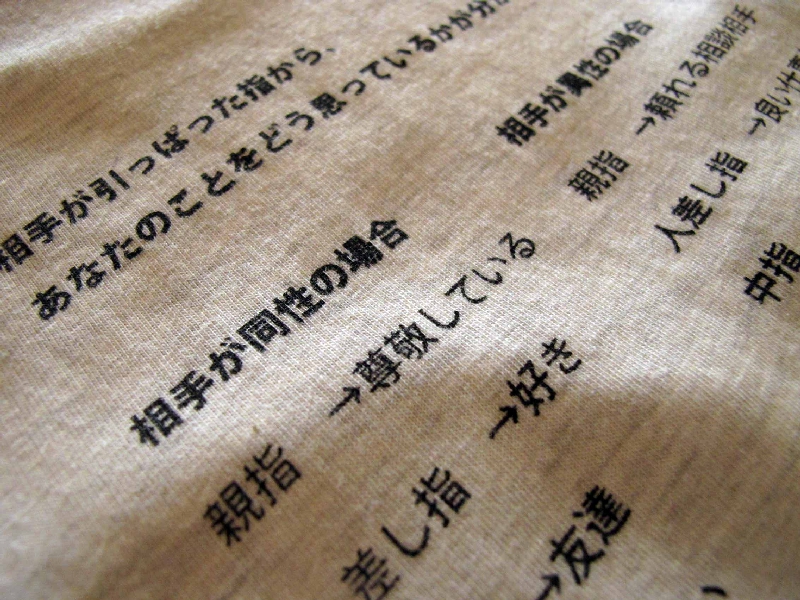 相手が引っぱった指から、
あなたのことをどう思っているかが分
相手が同性の場合
親指 →尊敬している
差し指 →好き
→友達
相手が異性の場合
親指 →頼れる相談相手
人差し指 →良い仕事
中指